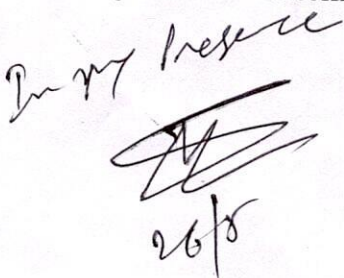 In my Presence
26/8